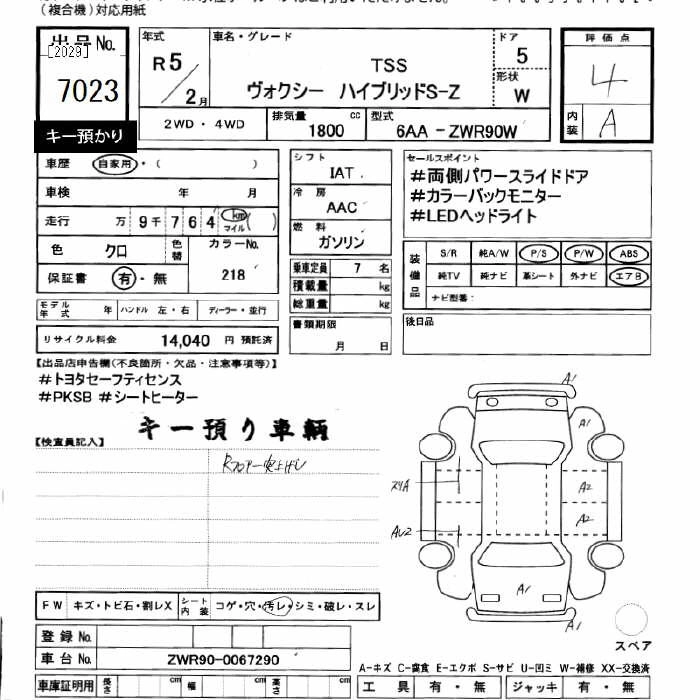 (複合機)対応用紙
出品No.
[2029]
7023
キー預かり
年式
R5/2月
車名・グレード
TSS
ヴォクシー ハイブリッドS-Z
ドア
5
形状
W
評価点
4
内装
A
2WD・4WD
排気量
1800 cc
型式
6AA-ZWR90W
車歴 自家用・( )
車検 年 月
走行 万 9千 7 6 4 km マイル ( )
色 クロ
色替
カラーNo.
218
保証書 有・無
モデル年式 年
ハンドル 左・右
ディーラー・並行
リサイクル料金 14,040 円 預託済
シフト
IAT
冷房
AAC
燃料
ガソリン
乗車定員 7 名
積載量 kg
総重量 kg
書類期限
月 日
セールスポイント
#両側パワースライドドア
#カラーバックモニター
#LEDヘッドライト
装備品
S/R 純A/W P/S P/W ABS
純TV 純ナビ 革シート 外ナビ エアB
ナビ型番:
後日品
【出品店申告欄(不良箇所・欠品・注意事項等)】
#トヨタセーフティセンス
#PKSB #シートヒーター
キー預り車輌
【検査員記入】
Rフロアー突上げU
A1
A1
スリA
A2
AU2
A2
A1
A1
スペア
FW キズ・トビ石・割レX
シート内装 コゲ・穴・汚レ・シミ・破レ・スレ
登録No.
車台No. ZWR90-0067290
車庫証明用 長さ cm 幅 cm 高さ cm
A-キズ C-腐食 E-エクボ S-サビ U-凹ミ W-補修 XX-交換済
工具 有・無 ジャッキ 有・無